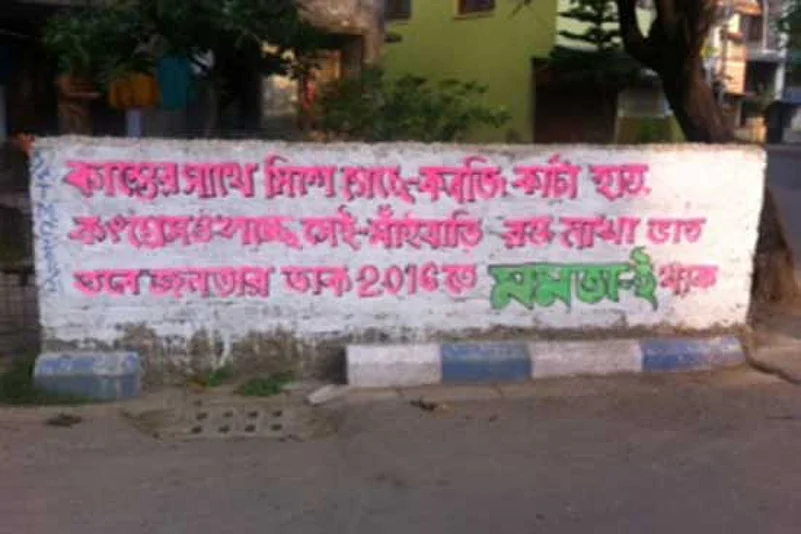 কাস্তের সাথে মিশে গেছে-কবজি কাটা হাত.
কংগ্রেসও খাচ্ছে তাই-সাঁইবাড়ি-রক্ত মাখা ভাত
জনতার ডাক 2016 তে মমতা-ই থাক